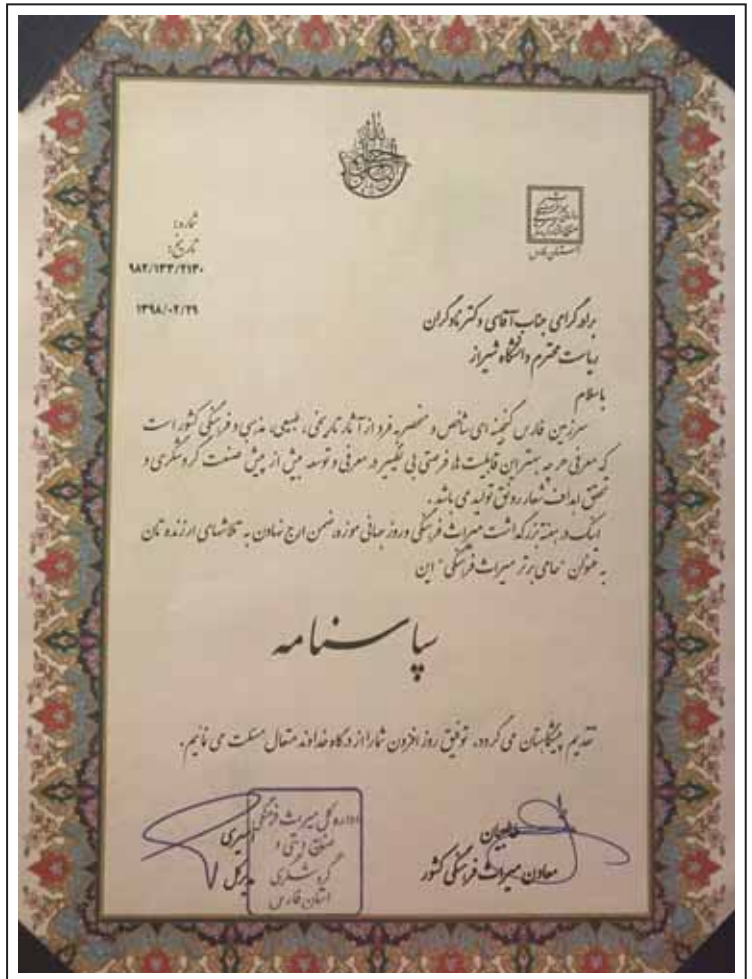 شماره:
تاریخ:
۹۸۲/۱۳۳/۲۱۳۰
۱۳۹۸/۰۲/۲۹
استان فارس
برادر گرامی جناب آقای دکتر نادگران
ریاست محترم دانشگاه شیراز
باسلام
سرزمین فارس گنجینه ای شاخص و منحصر به فرد از آثار تاریخی، طبیعی، مذهبی و فرهنگی کشور است
که معرفی هر چه بهتر این قابلیت ها، فرصتی بی نظیر در معرفی و توسعه بیش از پیش صنعت گردشگری و
تحقق اهداف شعار رونق تولید می باشد.
اینک در هفته بزرگداشت میراث فرهنگی و روز جهانی موزه، ضمن ارج نهادن به تلاشهای ارزنده تان
به عنوان "حامی برتر میراث فرهنگی" این
سپاسنامه
تقدیم پیشگاهتان می گردد، توفیق روز افزون شما را از درگاه خداوند متعال مسئلت می نمایم.
طالبیان
معاون میراث فرهنگی کشور
امیری
مدیرکل
اداره کل میراث فرهنگی
صنایع دستی و
گردشگری
استان فارس